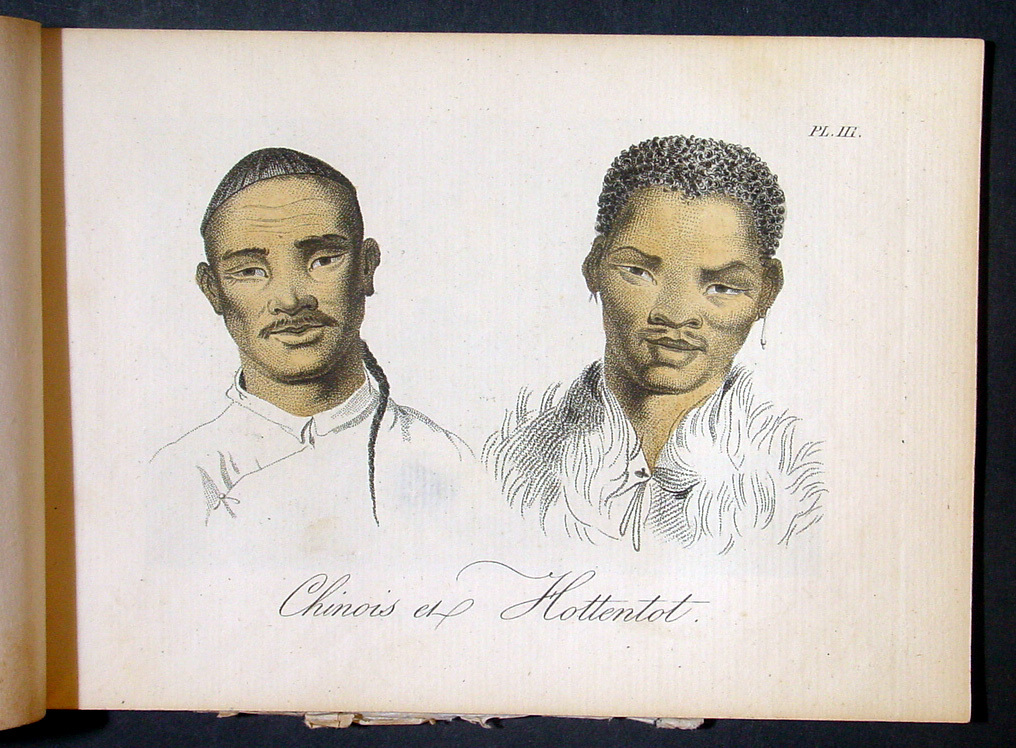 PL. III.
Chinois et Hottentot.